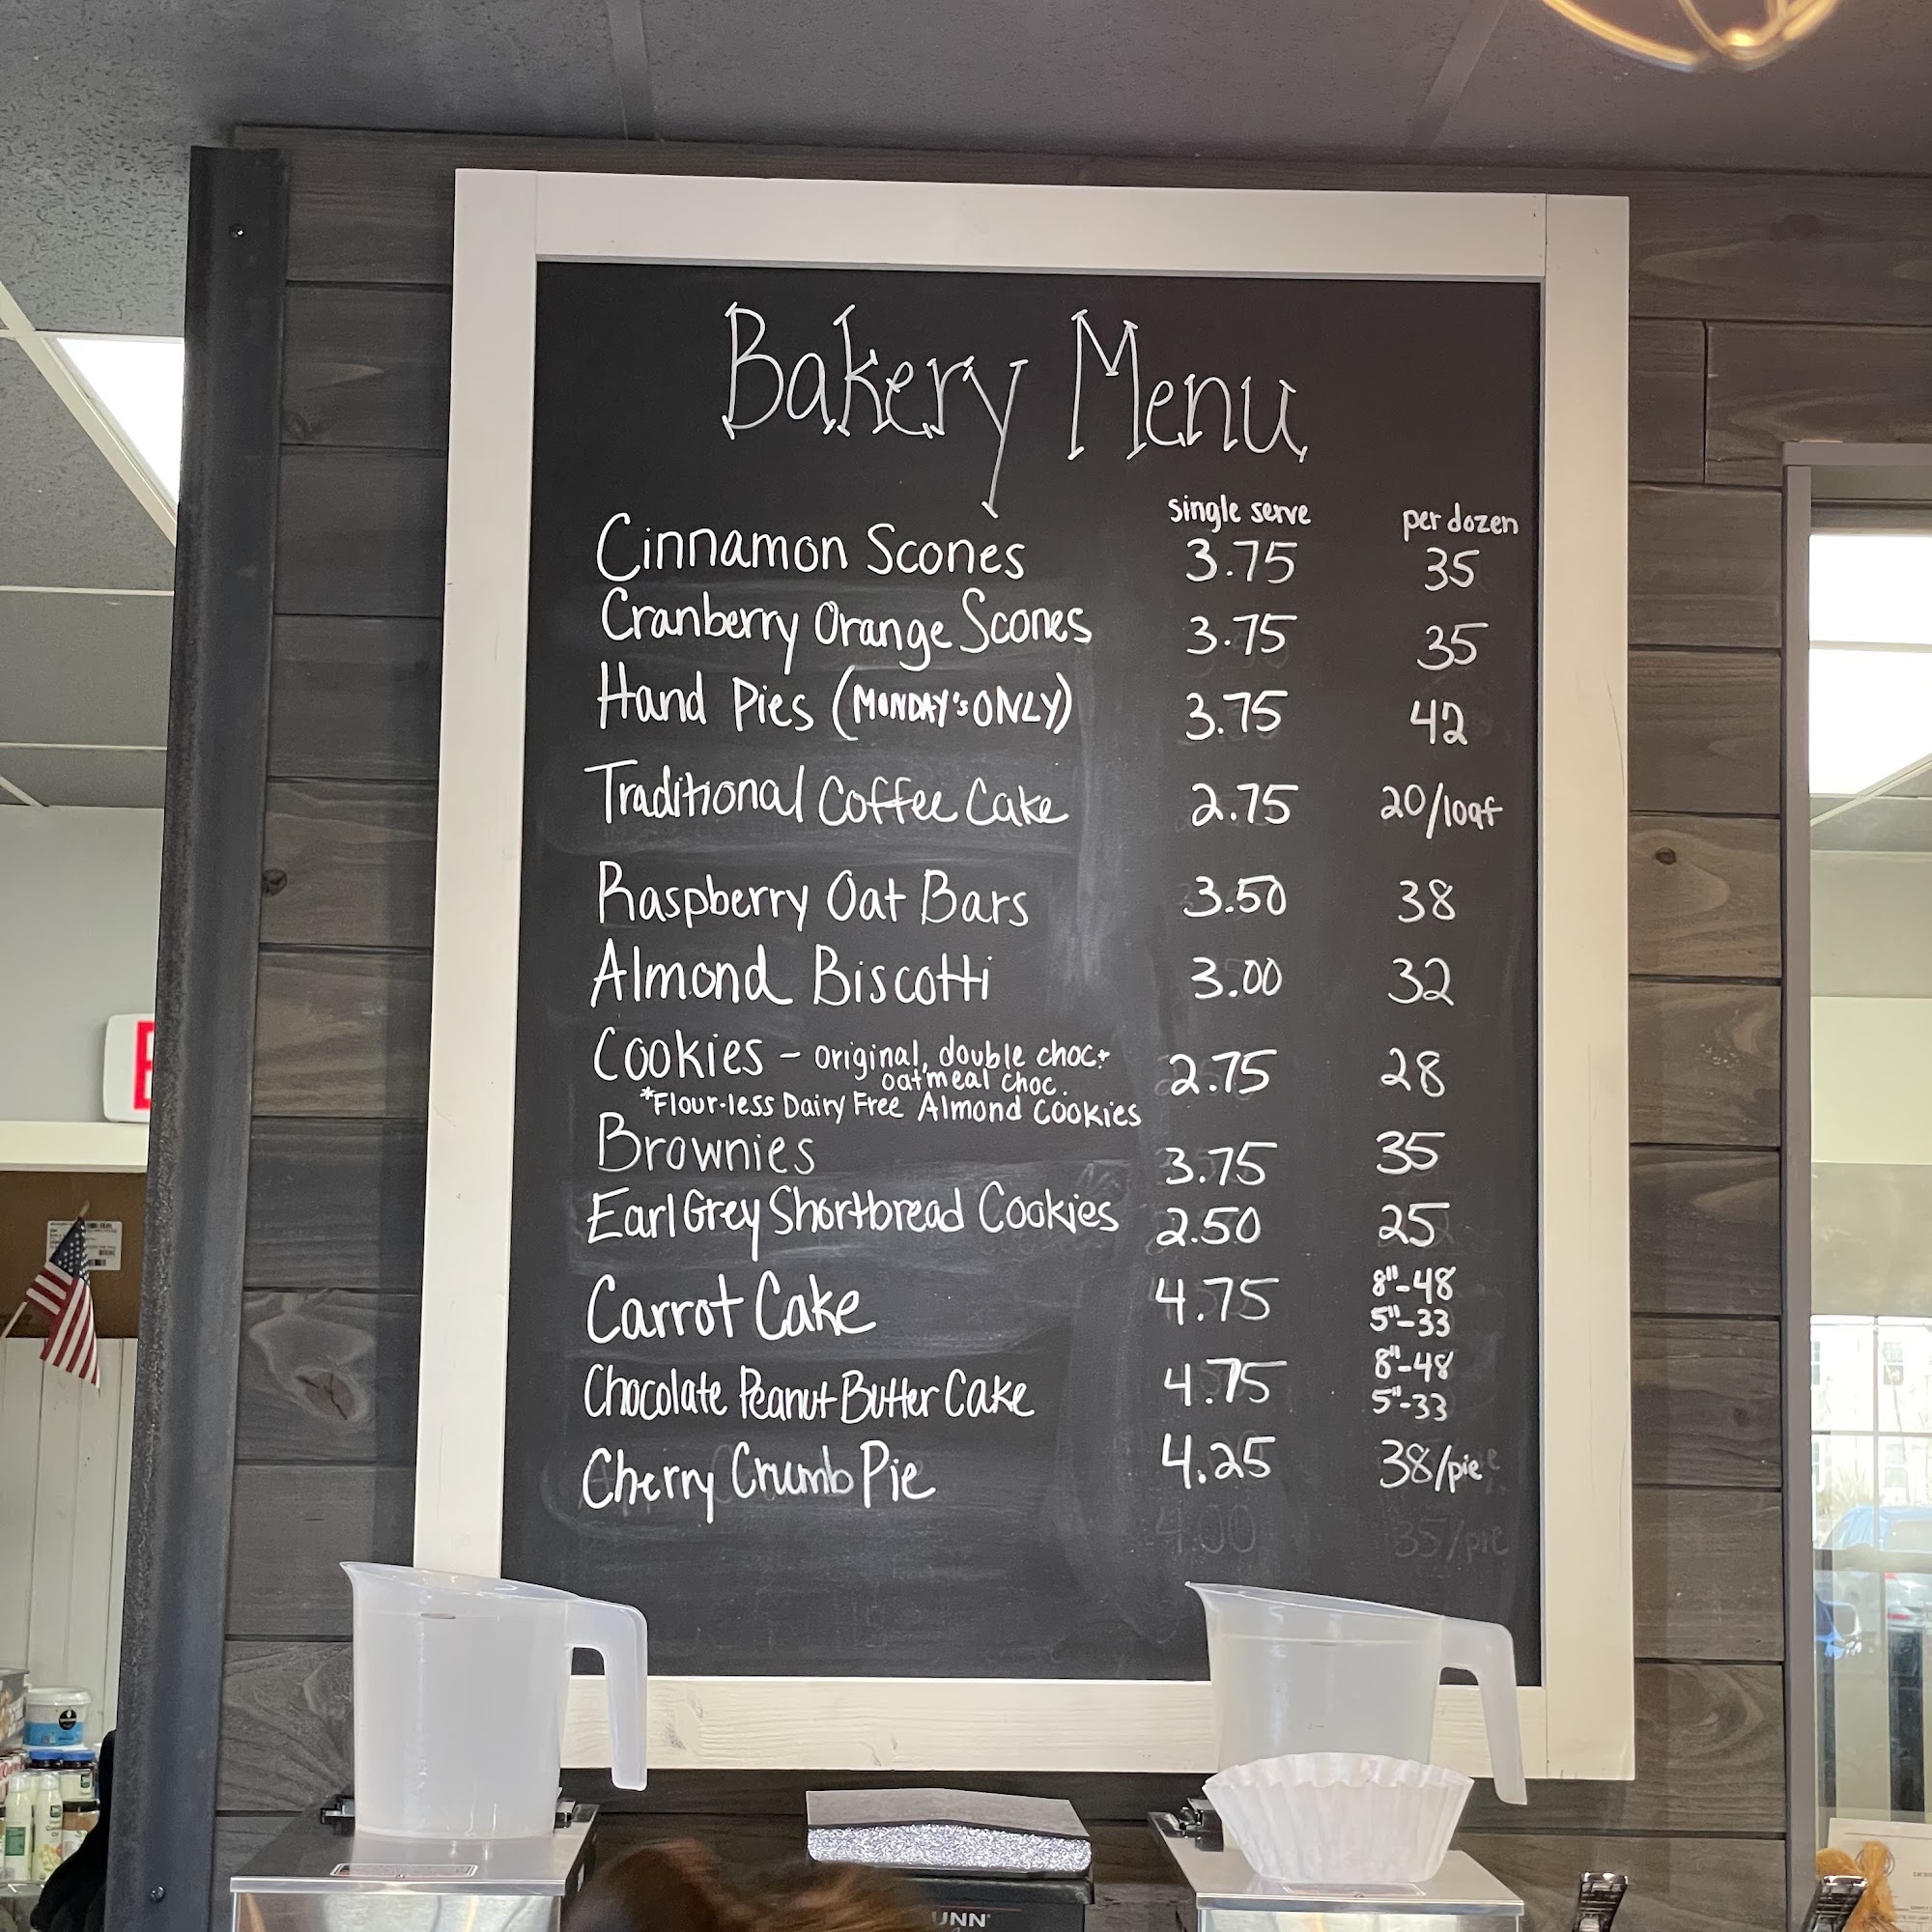 Bakery Menu
single serve per dozen
Cinnamon Scones 3.75 35
Cranberry Orange Scones 3.75 35
Hand Pies (MONDAY'S ONLY) 3.75 42
Traditional Coffee Cake 2.75 20/loaf
Raspberry Oat Bars 3.50 38
Almond Biscotti 3.00 32
Cookies - original, double choc+ 2.75 28
oatmeal choc.
*Flour-less Dairy Free Almond Cookies
Brownies 3.75 35
Earl Grey Shortbread Cookies 2.50 25
Carrot Cake 4.75 8"-48
5"-33
Chocolate Peanut Butter Cake 4.75 8"-48
5"-33
Cherry Crumb Pie 4.25 38/pie
4.00 35/pie
UNN